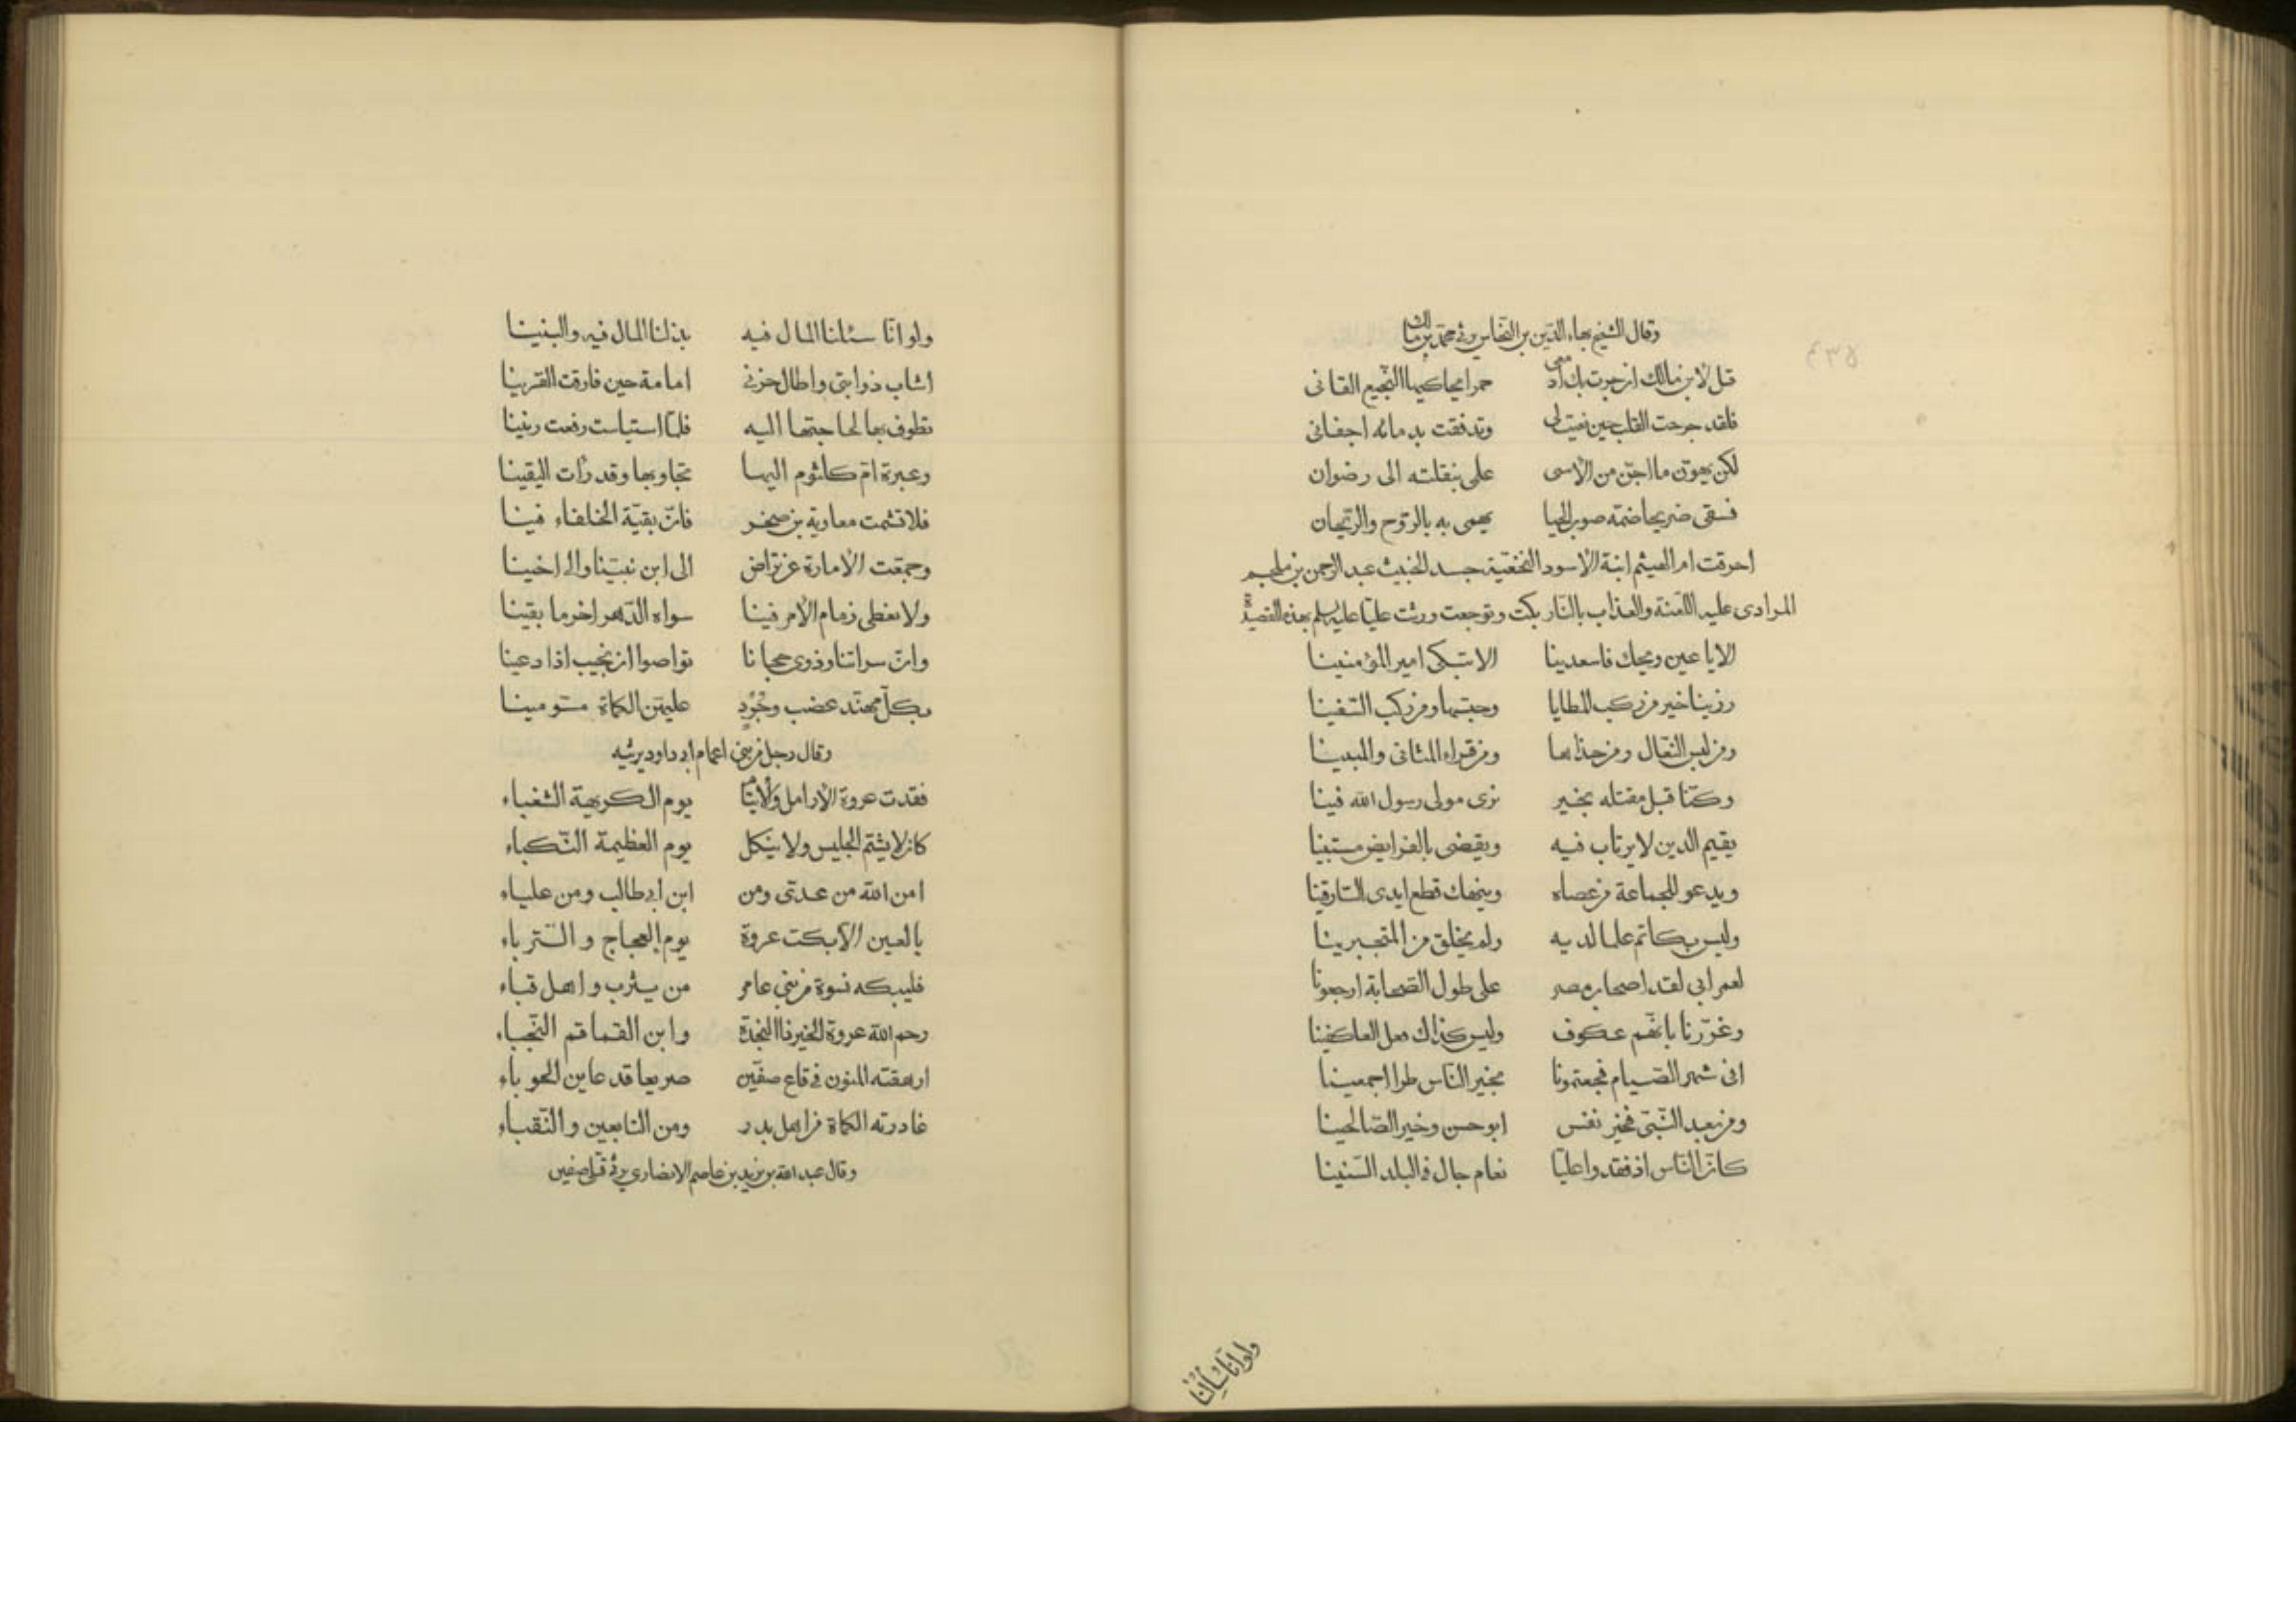 وقال الشيخ بهاء الدين بن النحاس يرثى محمد بن مالك
قل لابن مالك ان جرت بك ادمعى حمرا يحاكيها النجيع القانى
فلقد جرحت القلب حين نعيت لى وتدفقت بدمائه اجفانى
لكن يهون ما اجن من الاسى علمى بنقلته الى رضوان
فسقى ضريحا ضمه صوب الحيا يهمى به بالروح والريحان
احرقت ام الهيثم ابنة الاسود النخعية جسد الخبيث عبد الرحمن بن ملجم
المرادى عليه اللعنة والعذاب بالنار بكت وتوجعت ورثت عليا عليه السلم بهذه القصيدة
الا يا عين ويحك فاسعدينا الا تبكى امير المؤمنينا
رزينا خير من ركب المطايا وحبسها ومن ركب السفينا
ومن لبس النعال ومن حذاها ومن قراء المثانى والمبينا
وكنا قبل مقتله بخير نرى مولى رسول الله فينا
يقيم الدين لا يرتاب فيه ويقضى بالفرايض مستبينا
ويدعو للجماعة من عصاه وينهك قطع ايدى السارقينا
وليس بكاتم علما لديه ولم يخلق من المتجبرينا
لعمر ابى لقد اصحاب مصر على طول الصحابة ارجعونا
وغررنا بانهم عكوف وليس كذاك فعل العاكفينا
افى شهر الصيام فجعتمونا بخير الناس طرا اجمعينا
ومن بعد النبى فخير نفس ابو حسن وخير الصالحينا
كان الناس اذ فقدوا عليا نعام جال فى البلد السنينا
ولو انا سئلنا
ولو انا سئلنا المال فيه بذلنا المال فيه والبنينا
اشاب ذوابتى واطال حزنى امامة حين فارقت القرينا
تطوف بها لحاجتها اليه فلما استياست رفعت رنينا
وعبرة ام كلثوم اليها تجاوبها وقد رأت اليقينا
فلا تشمت معاوية بن صخر فان بقية الخلفاء فينا
وجمعت الامارة عن تراض الى ابن نبينا والى اخينا
ولا نعطى زمام الامر فينا سواه الدهر اخر ما بقينا
وان سراتنا وذوى حجانا تواصوا ان نجيب اذا دعينا
بكل مهند عضب وجرد عليهن الكماة مسومينا
وقال رجل من بنى اعمام ابى داود يرثيه
فقدت عروة الارامل والأيتام يوم الكريهة الشغباء
كان لا يشتم الجليس ولا ينكل يوم العظيمة النكباء
امن الله من عدتى ومن ابن ابى طالب ومن علياء
يا لعين الا بكت عروة يوم العجاج و الترباء
فليبكه نسوة من بنى عامر من يثرب و اهل قباء
رحم الله عروة الخير ذا النجدة وابن القماقم النجباء
ارهقته المنون فى قاع صفين صريعا قد عاين الحوباء
غادرته الكماة من اهل بدر ومن التابعين والنقباء
وقال عبد الله بن يزيد بن عاصم الانصاري يرثى قتلى صفين